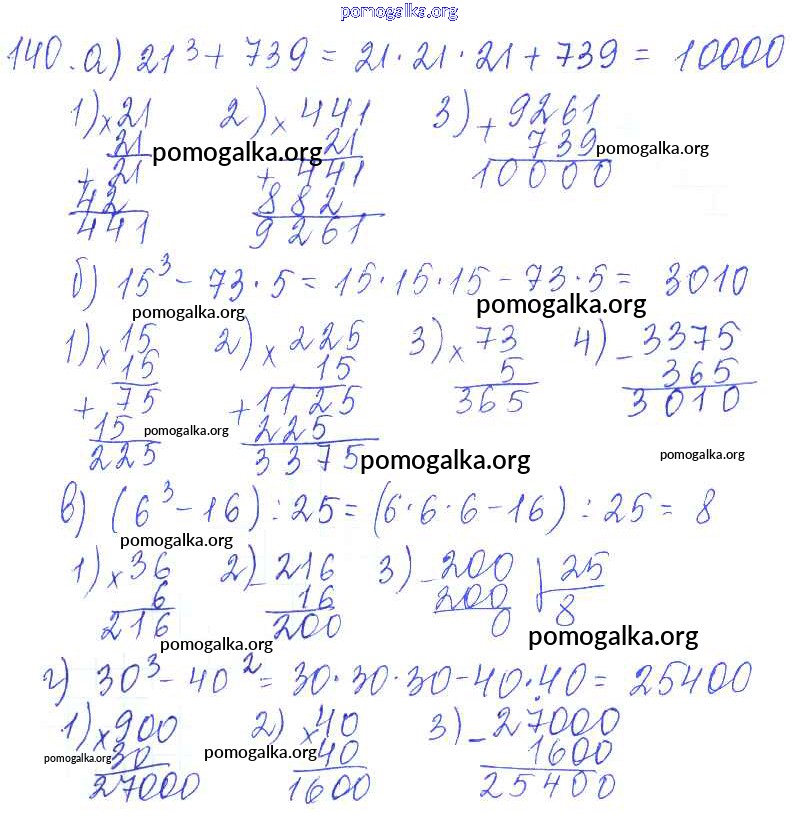 pomogalka.org
140. а) 21³ + 739 = 21·21·21 + 739 = 10000
1) × 21 2) × 441 3) + 9261
21 21 739
pomogalka.org pomogalka.org
+ 21 + 441 10000
42 882
441 9261
б) 15³ - 73·5 = 15·15·15 - 73·5 = 3010
pomogalka.org pomogalka.org
1) × 15 2) × 225 3) × 73 4) - 3375
15 15 5 365
+ 75 + 1125 365 3010
15 pomogalka.org 225
225 3375 pomogalka.org pomogalka.org
в) (6³ - 16) : 25 = (6·6·6 - 16) : 25 = 8
pomogalka.org
1) × 36 2) - 216 3) - 200 | 25
6 16 200 8
216 200 0
pomogalka.org pomogalka.org
г) 30³ - 40² = 30·30·30 - 40·40 = 25400
1) × 900 2) × 40 3) - 27000
pomogalka.org 30 pomogalka.org 40 1600
27000 1600 25400